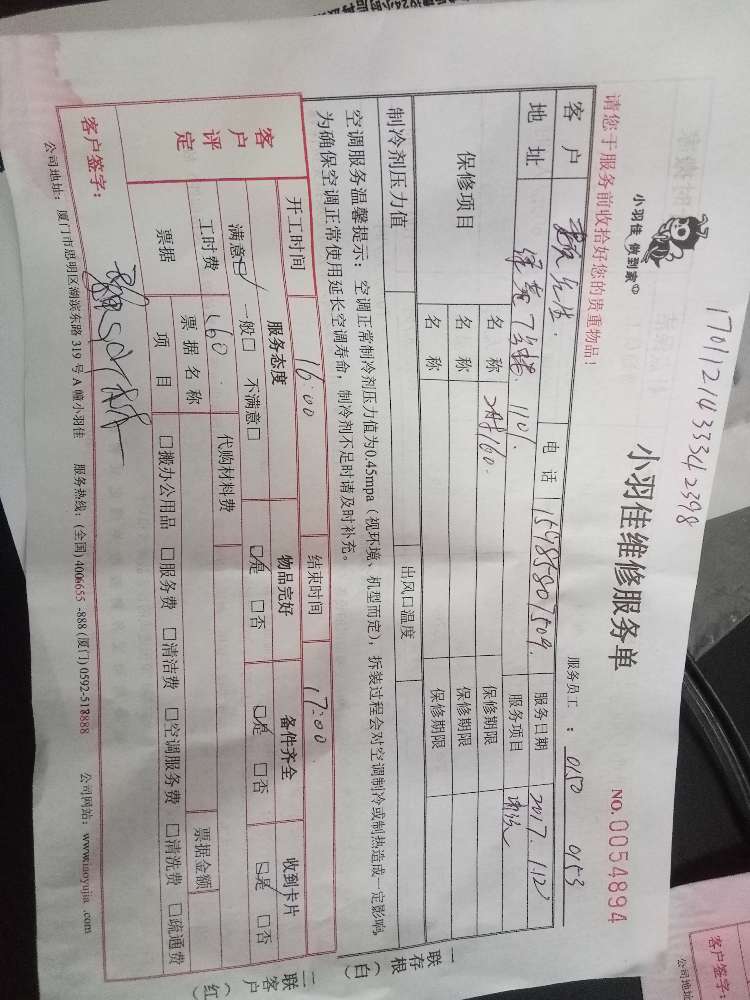 170112143334 2398
小羽佳 做到家
小羽佳维修服务单
NO.0054894
请您于服务前收拾好您的贵重物品!
服务员工 : 0150 0153
客户 先生 电话 15985807509 服务日期 2017.1.12
地址 7号楼 1101 服务项目
保修项目 名称 保修期限
名称 保修期限
名称 保修期限
制冷剂压力值 出风口温度
空调服务温馨提示:空调正常制冷剂压力值为0.45mpa(视环境、机型而定),拆装过程会对空调制冷或制热造成一定影响,
为确保空调正常使用延长空调寿命,制冷剂不足时请及时补充。
一存根(白)
二联客户(红
开工时间 16:00 结束时间 17:00
客户评定 服务态度 物品完好 备件齐全 收到卡片
满意☑ 一般□ 不满意□ □是 □否 □是 □否 □是 □否
工时费 160 代购材料费
票据 票据名称 票据金额
项目 □搬办公用品 □服务费 □清洁费 □空调服务费 □清洗费 □疏通费
客户签字:
公司地址:厦门市思明区湖滨东路 319 号 A 幢小羽佳 服务热线:(全国)4006655-888(厦门)0592-518888 公司网站:www.xiaoyujia.com
客户签字:
公司地址